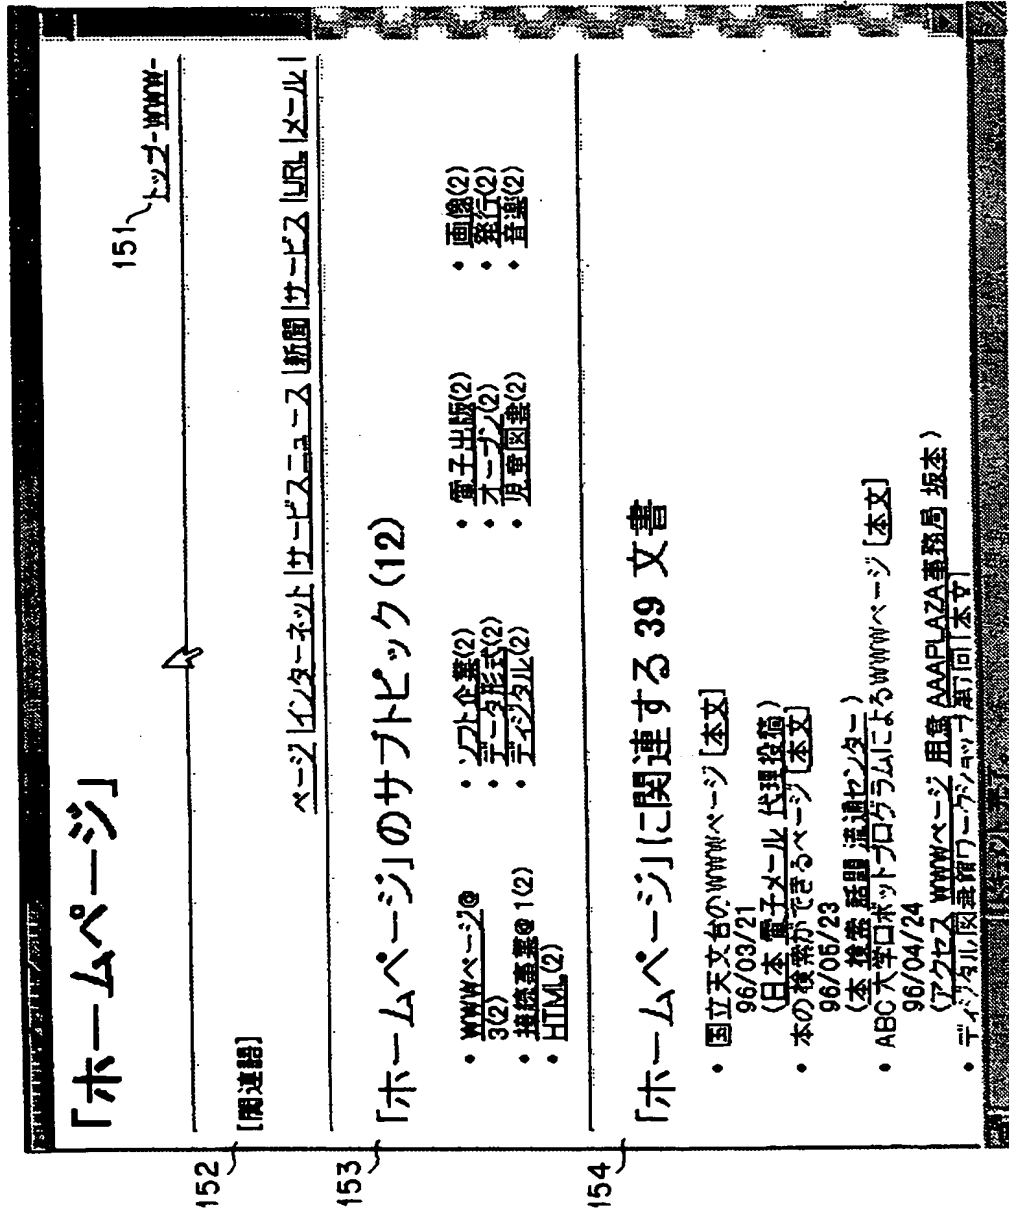 「ホームページ」
151
トップ-WWW-
152
[関連語]
ページ|インターネット|サービスニュース|新聞|サービス|URL|メール|
153
「ホームページ」のサブトピック(12)
・WWWページ@3(2)
・接続事業@1(2)
・HTML(2)
・ソフト企業(2)
・データ形式(2)
・ディジタル(2)
・電子出版(2)
・オープン(2)
・児童図書(2)
・画像(2)
・発行(2)
・音楽(2)
154
「ホームページ」に関連する 39 文書
・国立天文台のWWWページ [本文]
96/03/21
(日本 電子メール 代理投稿)
・本の検索ができるページ [本文]
96/05/23
(本 検索 話題 流通センター)
・ABC大学ロボットプログラムによるWWWページ [本文]
96/04/24
(アクセス WWWページ 用意 AAAPLAZA事務局 坂本)
・ディジタル図書館ワークショップ第7回 [本文]